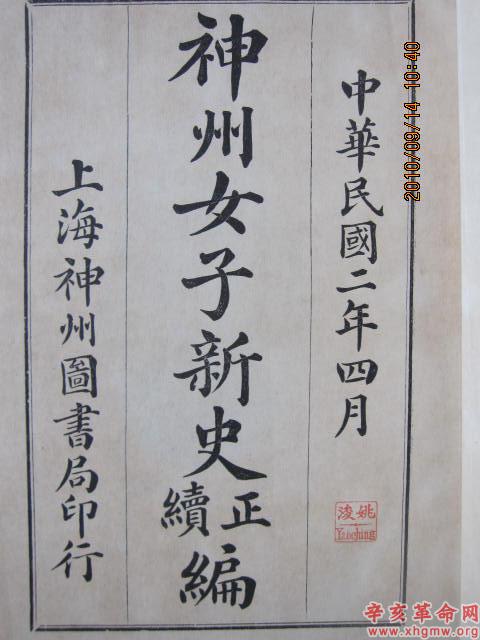 中華民國二年四月
神州女子新史
正續編
上海神州圖書局印行
姚浚
2010/09/14 10:40
辛亥革命网
www.xhgmw.org